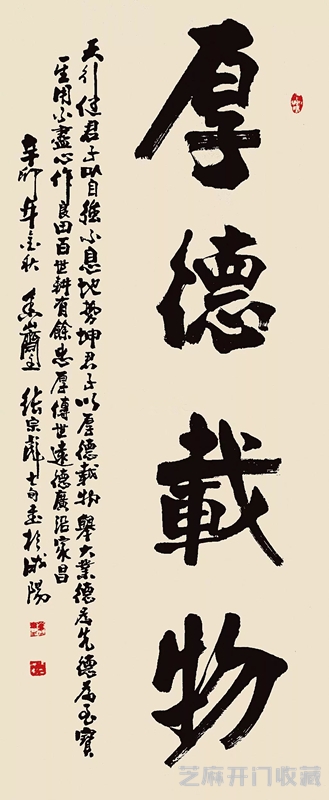 厚德載物
天行健君子以自強不息地勢坤君子以厚德載物舉大業德為先德為至寶
一生用不盡心作良田百世耕有餘忠厚傳世遠德廣治家昌
辛卯年金秋 張宗彪 於咸陽
芝麻开门收藏